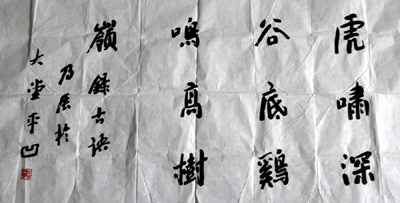 虎嘯深
谷底鷄
鳴高樹
巔錄古語
於
大堂平凹